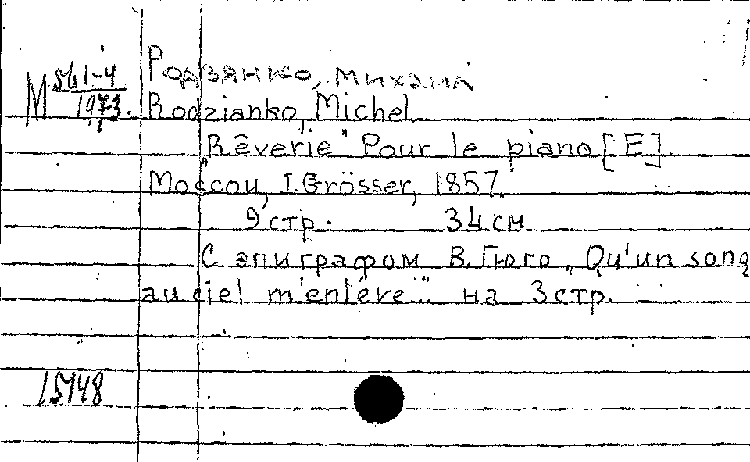 М 561-4
1973.
Родзянко, Михаил
Rodzianko, Michel
"Rêverie" Pour le piano [E].
Moscou, I. Grösser, 1857.
9 стр. 34 см
С эпиграфом В. Гюго „Qu'un song
au ciel m'enlève" на 3 стр.
15748